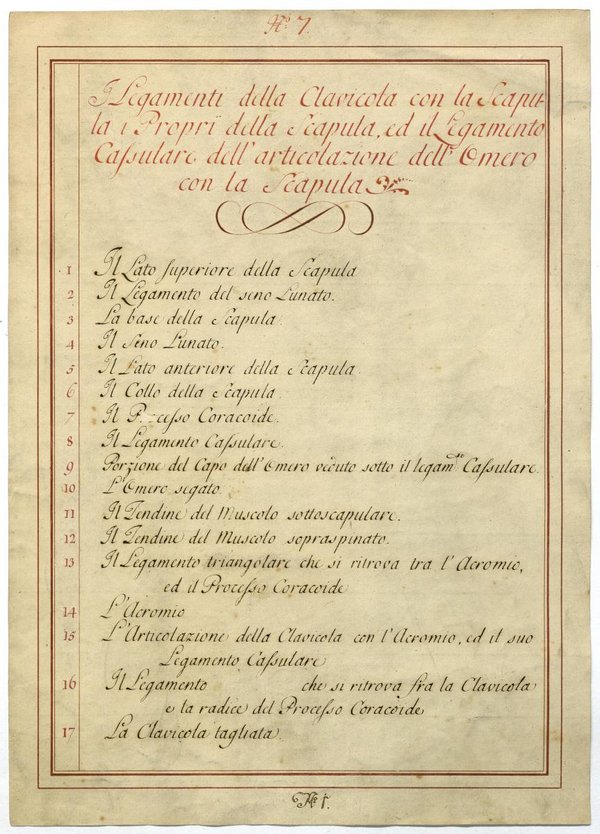 No. 7.
I Legamenti della Clavicola con la Scapu-
la i Proprï della Scapula, ed il Legamento
Caſsulare dell'articolazione dell' Omero
con la Scapula
1 Il Lato superiore della Scapula
2 Il Legamento del seno Lunato.
3 La base della Scapula.
4 Il Seno Lunato.
5 Il Lato anteriore della Scapula.
6 Il Collo della Scapula.
7 Il Processo Coracoide.
8 Il Legamento Caſsulare.
9 Porzione del Capo dell'Omero sotto il legam.to Caſsulare.
10 L'Omero segato.
11 Il Tendine del Muscolo sottoscapulare.
12 Il Tendine del Muscolo sopraspinato.
13 Il Legamento triangolare che si ritrova tra l'Acromio,
ed il Proceſso Coracoide
14 L'Acromio
15 L'Articolazione della Clavicola con l'Acromio, ed il suo
Legamento Caſsulare
16 Il Legamento che si ritrova fra la Clavicola
e la radice del Proceſso Coracoide
17 La Clavicola tagliata.
No. 1.